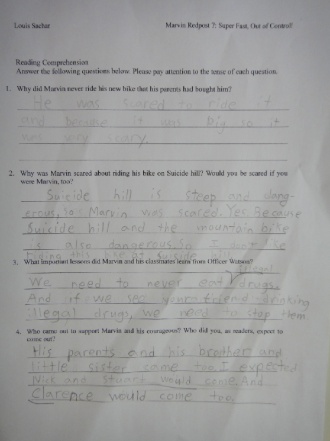 Louis Sachar Marvin Redpost 7: Super Fast, Out of Control!
Reading Comprehension
Answer the following questions below. Please pay attention to the tense of each question.
1. Why did Marvin never ride his new bike that his parents had bought him?
He was scared to ride it
and because it was big so it
was very scary.
2. Why was Marvin scared about riding his bike on Suicide hill? Would you be scared if you
were Marvin, too?
Suicide hill is steep and dang-
erous, so Marvin was scared. Yes. Because
Suicide hill and the mountain bike
is also dangerous. So I
this at Suicide
3. What important lessons did Marvin and his classmates learn from Officer Watson?
illegal
We need to never eat drugs.
And if we see friend smoking
illegal drugs, we need to stop them.
4. Who came out to support Marvin and his courageous? Who did you, as readers, expect to
come out?
His parents and his brother and
little sister came too. I expected
Nick and Stuart would come. And
Clarence would come too.